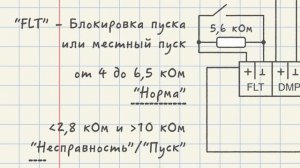 "FLT" – Блокировка пуска
или местный пуск
от 4 до 6,5 кОм
"Норма"
<2,8 кОм и >10 кОм
"Несправность"/"Пуск"
5,6 кОм
+ ⊥ + ⊥
FLT DMP